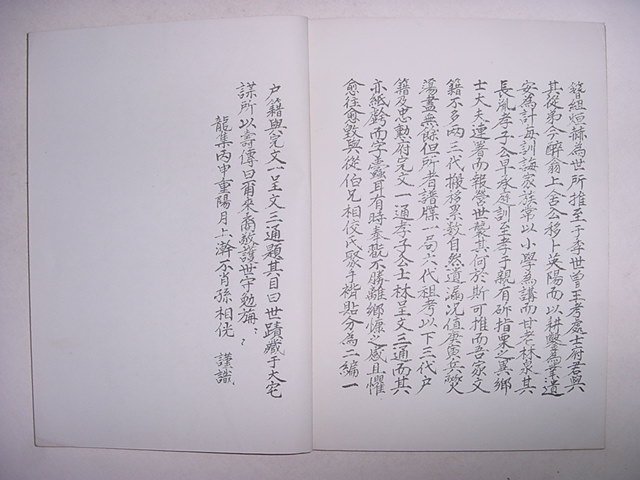 簪組烜赫爲世所推至于季世曾王考處士府君與
其從弟今醉翁上舍公移卜茨陽而以耕鑿爲業遺
安爲計每訓誨家族常以小學爲講而甘老林泉其
長胤孝子公早承庭訓至孝于親有斫指栗之異鄉
士大夫連署而報營世襲其何於斯可推而吾家文
籍不多兩三代搬移累數自然遺漏况值庚寅兵燹
蕩盡無餘但所者譜牒一局六代祖考以下三代戶
籍及忠勳府完文一通孝子公士林呈文三通而其
亦紙齡而字蠹耳有時奉翫不勝離鄉慷之感且懼
愈往愈毀與從伯兄相佼氏聚手褙貼分爲二編一
戶籍與完文一呈文三通題其目曰世蹟藏于大宅
謀所以壽傳曰爾來裔敬護世守勉旃
龍集丙申重陽月上澣不肖孫相侊 謹識